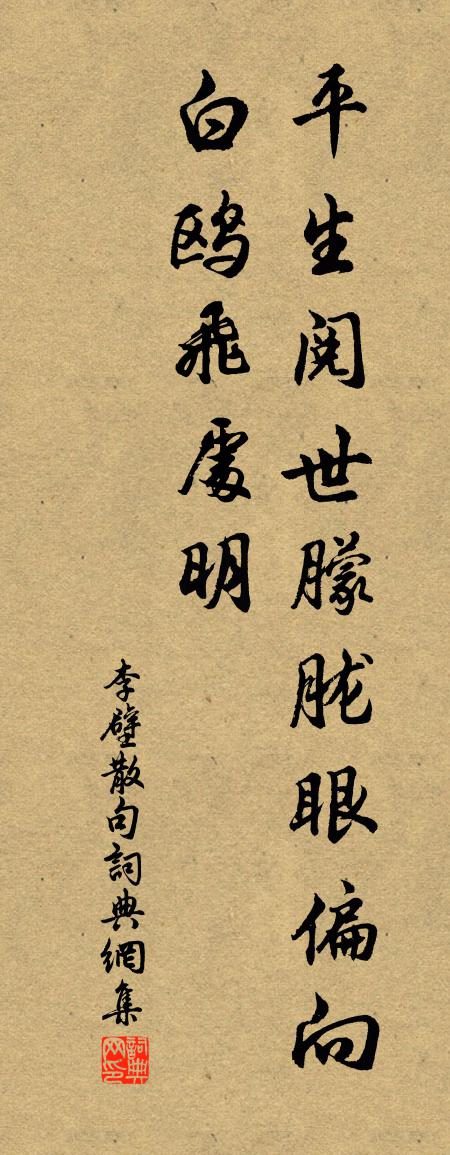 平生閱世朦朧眼偏向
白鷗飛處明
李壁散句詞典網集
詞典网印